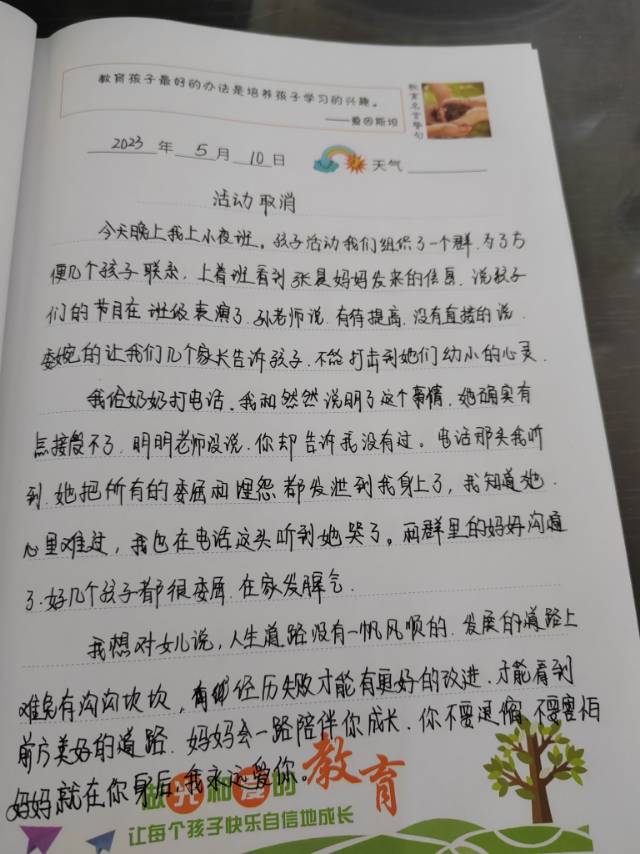 教育孩子最好的办法是培养孩子学习的兴趣。
——爱因斯坦
教育名言警句
2023年5月10日 天气
活动取消
今天晚上我上小夜班。孩子活动我们组织了一个群.为了方
便几个孩子联系.上着班看到张晨妈妈发来的信息.说孩子
们的节目在班级表演了.孙老师说.有待提高.没有直接的说.
委婉的让我们几个家长告诉孩子.不能打击到她们幼小的心灵.
我给奶奶打电话.我和然然说明了这个事情.她确实有
点接受不了.明明老师没说.你却告诉我没有过。电话那头我听
到.她把所有的委屈和埋怨都发泄到我身上了,我知道她.
心里难过,我也在电话这头听到她哭了。和群里的妈妈沟通
了.好几个孩子都很委屈.在家发脾气.
我想对女儿说,人生道路没有一帆风顺的.发展的道路上
难免有沟沟坎坎,有经历失败才能有更好的改进.才能看到
前方美好的道路.妈妈会一路陪伴你成长.你不要退缩.不要害怕
妈妈就在你身后.我永远爱你。
做光和爱的教育
让每个孩子快乐自信地成长